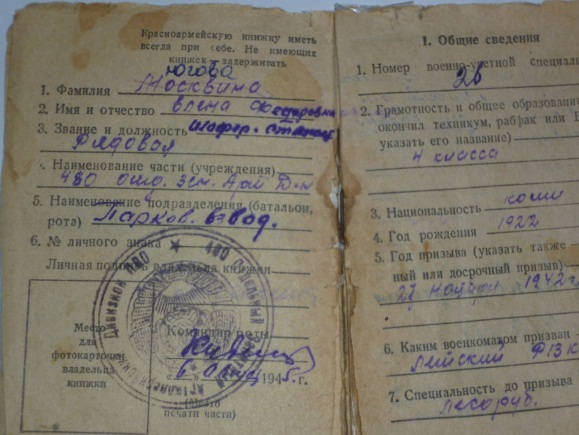 Красноармейскую книжку иметь
всегда при себе. Не имеющих
книжек — задерживать
Югова
1. Фамилия Москвина
2. Имя и отчество Елена Федоровна
3. Звание и должность
Рядовая
4. Наименование части (учреждения)
480 отд. зен. Арт Д-н
5. Наименование подразделения (батальон,
рота) Парков. взвод.
6. № личного знака
Личная подпись владельца книжки
Место
для
фотокарточки
владельца
книжки
Командир роты
1945 г.
(Место
печати части)
480 ОТДЕЛЬНЫЙ ЗЕНИТНЫЙ АРТИЛЛЕРИЙСКИЙ ДИВИЗИОН ПВО
I. Общие сведения
1. Номер военно-учетной специал
26
2. Грамотность и общее образован
окончил техникум, рабфак или В
указать его название)
4 класса
3. Национальность коми
4. Год рождения 1922
5. Год призыва (указать также
ный или досрочный призыв)
1942 г
6. Каким военкоматом призван
РВК
7. Специальность до призыва
Лесоруб.